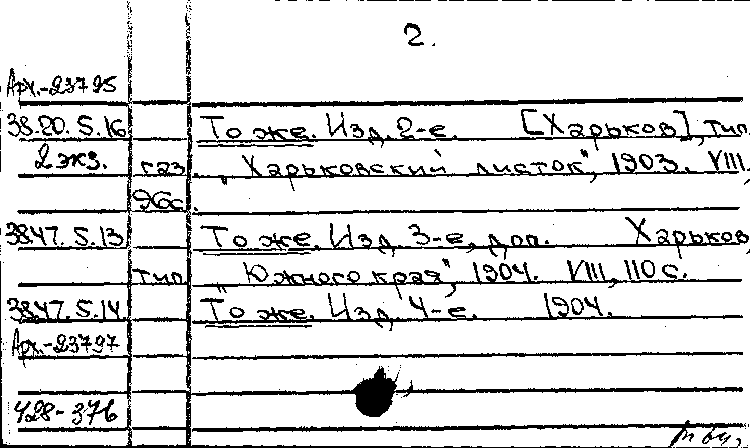 2.
Арх.-23795
38.20.5.16 То же. Изд. 2-е. [Харьков], тип.
2 экз. газ. "Харьковский листок", 1903. VIII,
96с.
3847.5.13 То же. Изд. 3-е, доп. Харьков,
тип. "Южного края", 1904. VIII, 110 с.
3847.5.14 То же. Изд. 4-е. 1904.
Арх.-23797
428-376